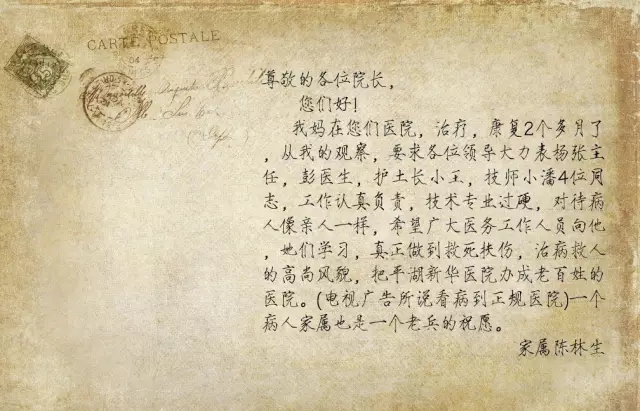 CARTE POSTALE
尊敬的各位院长，
您们好！
我妈在您们医院，治疗，康复2个多月了
，从我的观察，要求各位领导大力表杨张主
任，彭医生，护士长小王，技师小潘4位同
志，工作认真负责，技术专业过硬，对待病
人像亲人一样，希望广大医务工作人员向他
，她们学习，真正做到救死扶伤，治病救人
的高尚风貌，把平湖新华医院办成老百姓的
医院。(电视广告所说看病到正规医院)一个
病人家属也是一个老兵的祝愿。
家属陈林生